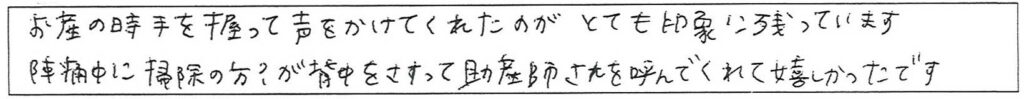 お産の時手を握って声をかけてくれたのが とても印象に残っています
陣痛中に掃除の方?が背中をさすって助産師さんを呼んでくれて嬉しかったです